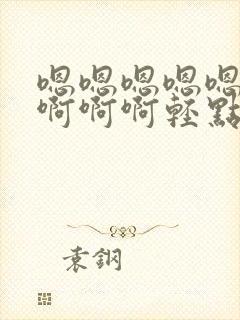 嗯嗯嗯嗯嗯
啊啊啊輕點
袁鋼